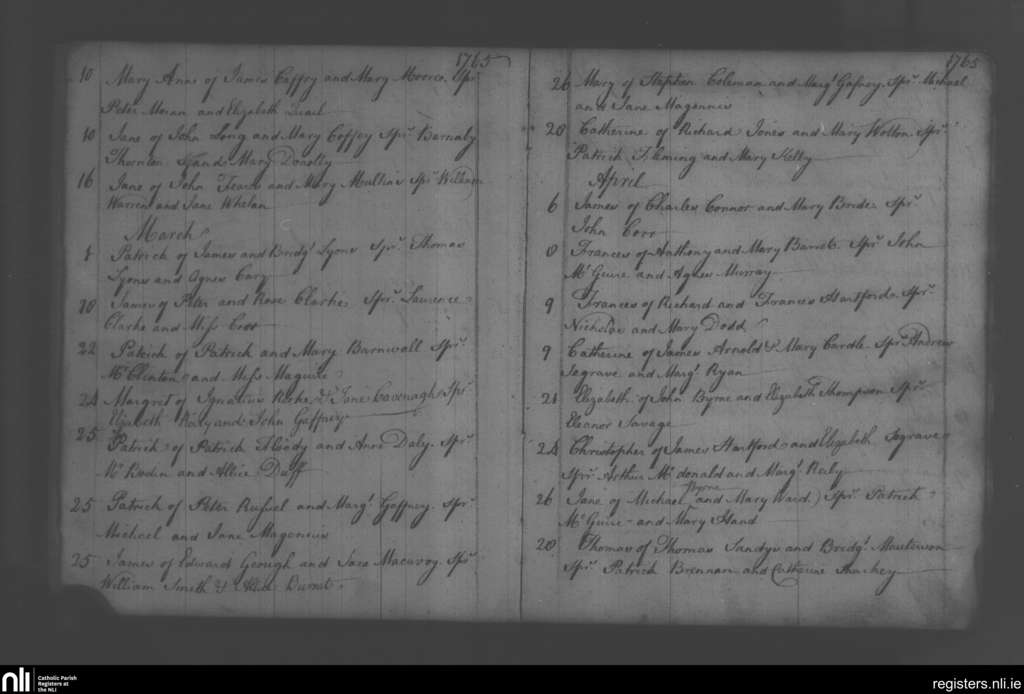 1765
10 Mary Anne of James Coffey and Mary Moore. Spr
Peter Moran and Elizabeth
10 Jane of John Long and Mary Coffey Spr Barnaby
Thornton and Mary Donolly
16 Jane of John and Mary Mullin Spr William
Warren and Jane Whelan
March
Patrick of James and Bridgt Lyons Spr. Thomas
Lyons and Agnes
James of Peter and Rose Clarke Spr. Laurence
Clarke and Miss
22 Patrick of Patrick and Mary Barnwall Spr
Mr Clinton and Miss Maguire
24 Margret of Ignatius and Jane Cavenagh Spr
Elizabeth Raly and John Gaffney
25 Patrick of Patrick and Anne Daly. Spr
and Allice Duff
25 Patrick of Peter Russel and Margt Gaffney. Spr
Michael and Jane Magennis
25 James of Edward Geough and Macavoy. Spr
William Smith &
1765
26 Mary of Stephen Coleman and Margt Gafney. Spr. Michael
and Jane Magennis
Catherine of Richard Jones and Mary Spr
Patrick Fleming and Mary Kelly
April
6 James of Charles Connor and Mary Bride Spr
John Corr
Frances of Anthony and Mary Barret. Spr John
McGuire and Agnes Murray
9 Frances of Richard and Frances Hartford. Spr
Nicholas and Mary Dodd
9 Catherine of James Arnold & Mary Cardle. Spr Andrew
Segrave and Margt Ryan
21 Elizabeth of John Byrne and Elizabeth Thompson Spr
Eleanor Savage
24 Christopher of James Hartford and Elizabeth Segrave
Spr Arthur Mcdonald and Margt Raly
26 Jane of Michael Byrne and Mary Ward) Spr Patrick
McGuire and Mary Hand
Thomas of Thomas Sandys and Bridgt
Spr Patrick Brennan and Catherine Sharkey
nli
Catholic Parish
Registers at
the NLI
registers.nli.ie